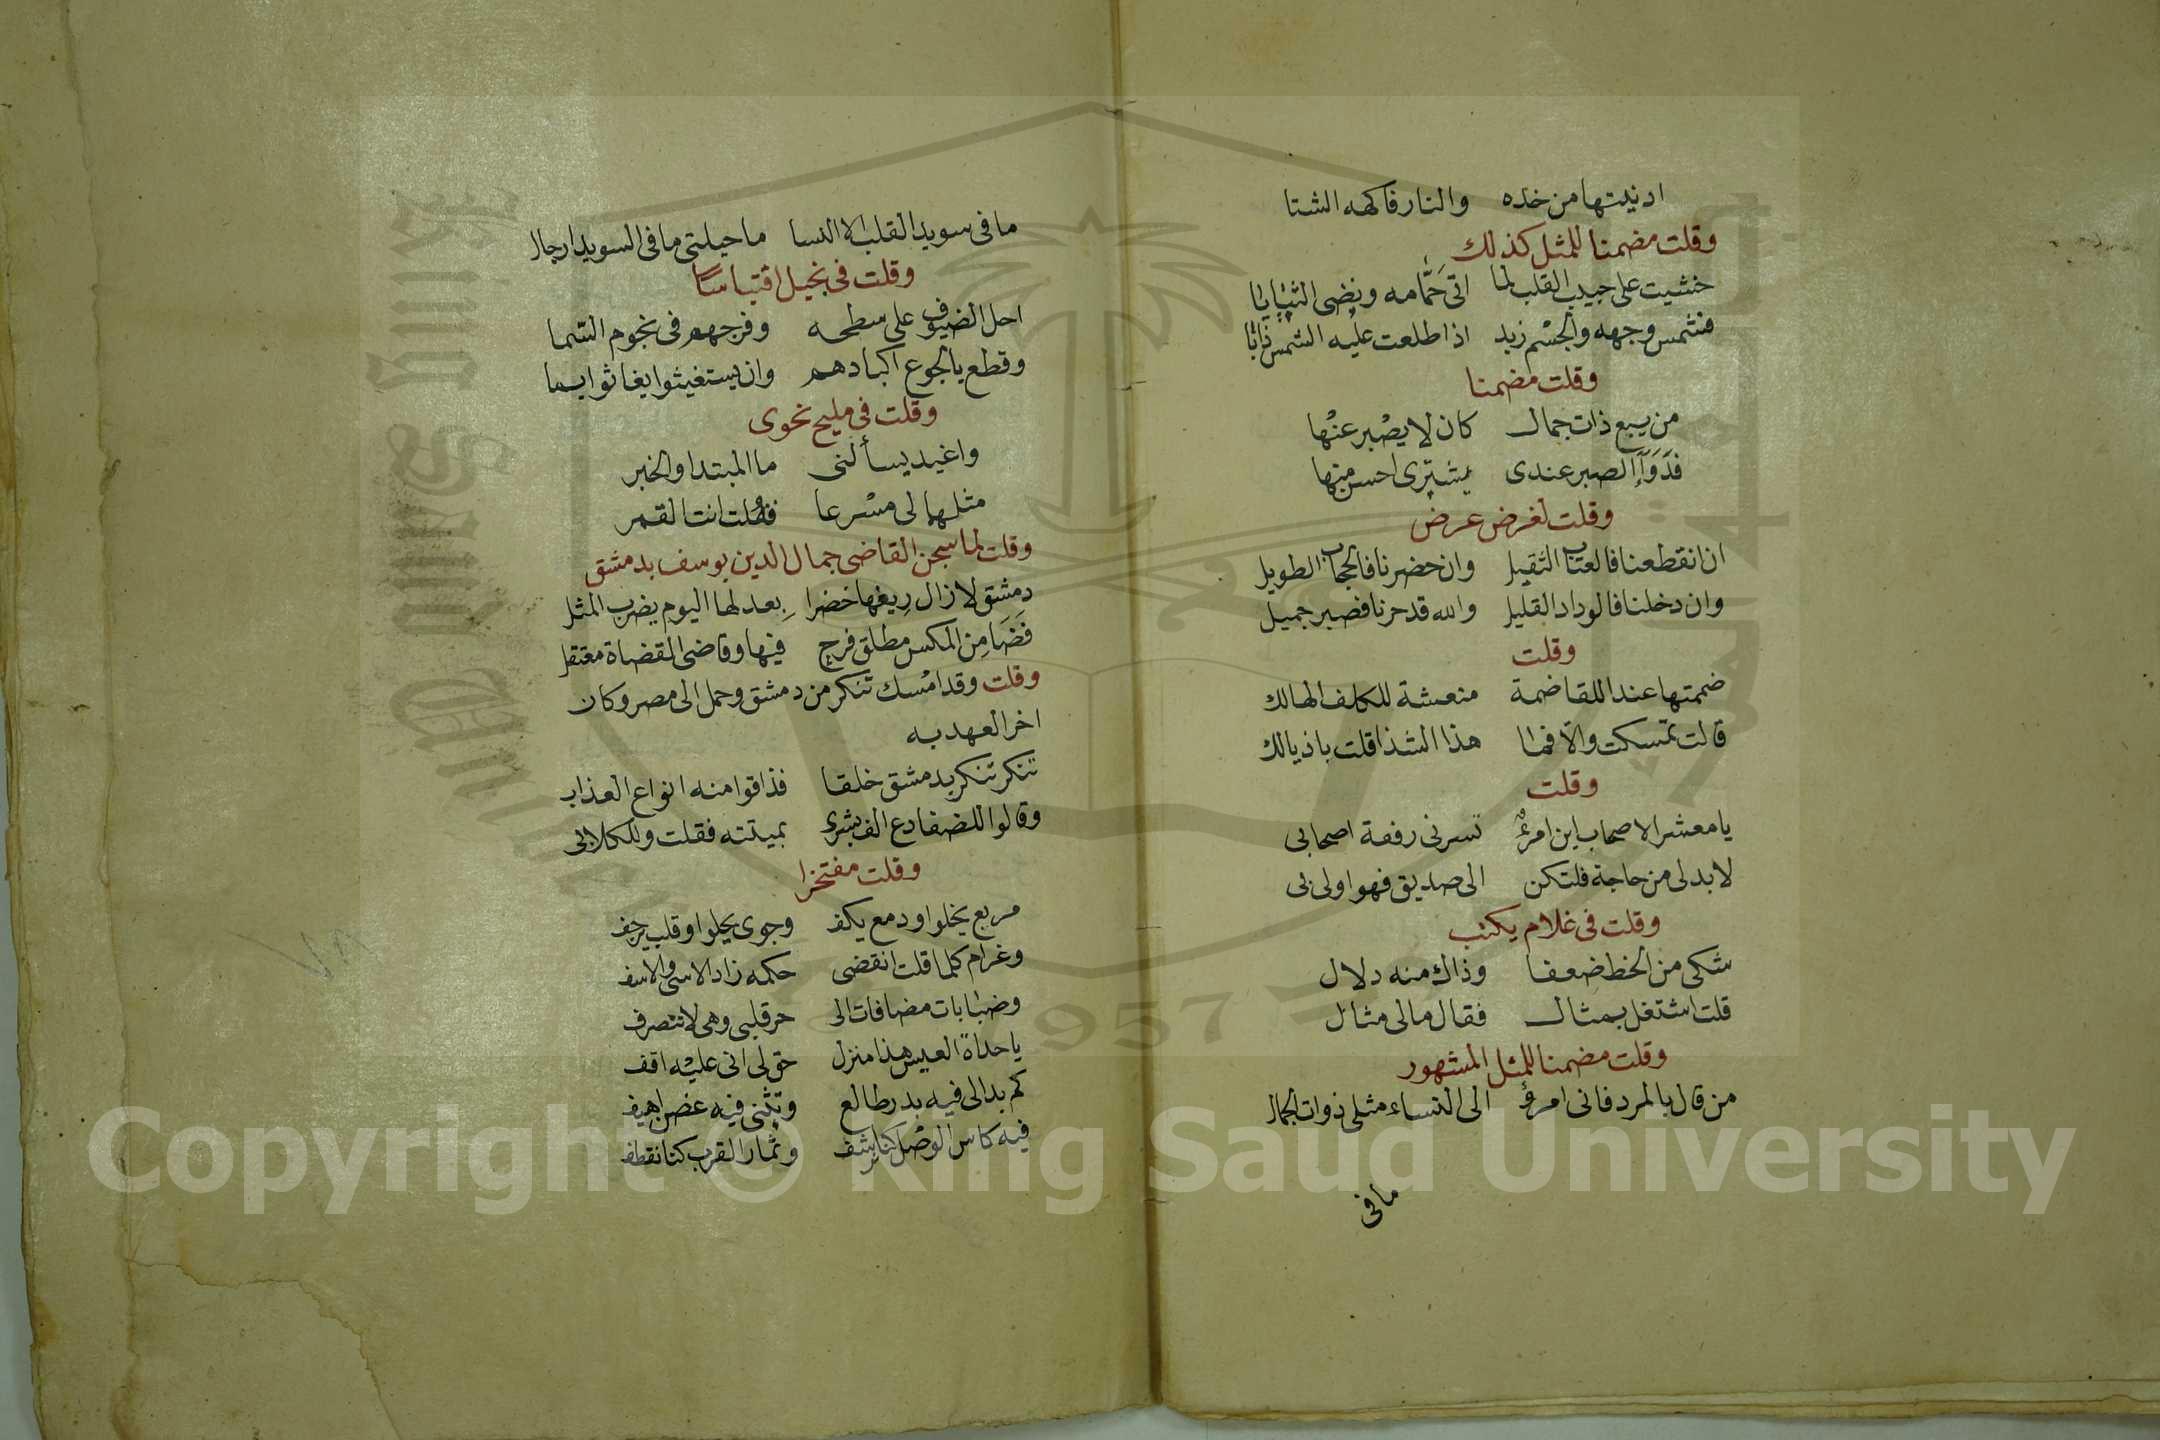 ادنيتها من خده والنار فاكهه الشتا
وقلت مضمنا للمثل كذلك
خشيت على حبيب القلب لما اتى حمامه ونضى الثيابا
فشمس وجهه والجسم زبد اذا طلعت عليه الشمس ذابا
وقلت مضمنا
من يبع ذات جمال كان لا يصبر عنها
فدوا الصبر عندى يشترى احسن منها
وقلت لغرض عرض
ان انقطعنا فالعتاب الثقيل وان حضرنا فالحجاب الطويل
وان دخلنا فالوداد القليل والله قد حرنا فصبر جميل
وقلت
ضممتها عند اللقا ضمة منعشة للكلف الهالك
قالت تمسكت والا فما هذا الشذا قلت باذيالك
وقلت
يا معشر الاصحاب اين امرؤ تسرنى رفقة اصحابى
لا بد لى من حاجة فلتكن الى صديق فهو اولى بى
وقلت فى غلام يكتب
شكى من الخط ضعفا وذاك منه دلال
قلت اشتغل بمثال فقال مالى مثال
وقلت مضمنا للمثل المشهور
من قال بالمرد فانى امرؤ الى النساء مثلى ذوات الجمال
ما فى
ما فى سويدا القلب الا النسا ما حيلتى ما فى السويدا رجال
وقلت فى بخيل اقتباسا
احل الضيوف على سطحه وفرجهم فى نجوم السما
وقطع بالجوع اكبادهم وان يستغيثوا يغاثوا بما
وقلت فى مليح نحوى
واغيد يسألنى ما المبتدا والخبر
مثلهما لى مسرعا فقلت انت القمر
وقلت لما سجن القاضى جمال الدين يوسف بدمشق
دمشق لا زال ربعها خضرا بعدلها اليوم يضرب المثل
فضامن المكس مطلق فرح فيها وقاضى القضاة معتقل
وقلت وقد امسك تنكر من دمشق وحمل الى مصر وكان
اخر العهد به
تنكر تنكر بدمشق خلقا فذاقوا منه انواع العذاب
وقالوا للضفادع الف بشرى بميتته فقلت وللكلاب
وقلت مفتخرا
مربع يخلوا ودمع يكف وجوى يحلوا وقلب يرجف
وغرام كلما قلت انقضى حكمه زاد الاسى والاسف
وضبابات مضافات الى حر قلبى وهى لا تنصرف
يا حداة العيس هذا منزل حق لى انى عليه اقف
كم بدا لى فيه بدر طالع وتثنى فيه غصن اهيف
فيه كاس الوصل كنا نرشف وثمار القرب كنا نقطف
1957
Copyright © King Saud University